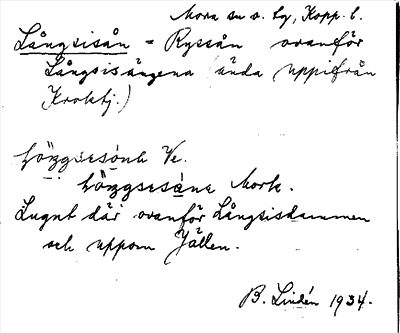 Mora sn o. tg, Kopp. l.
Långsisån = Ryssån ovanför
Långsisängena (ända uppifrån
Kroktj.)
Ve.
Mork.
Lugnt där ovanför Långsisdammen
och uppom Fällen.
B. Lindén 1934.